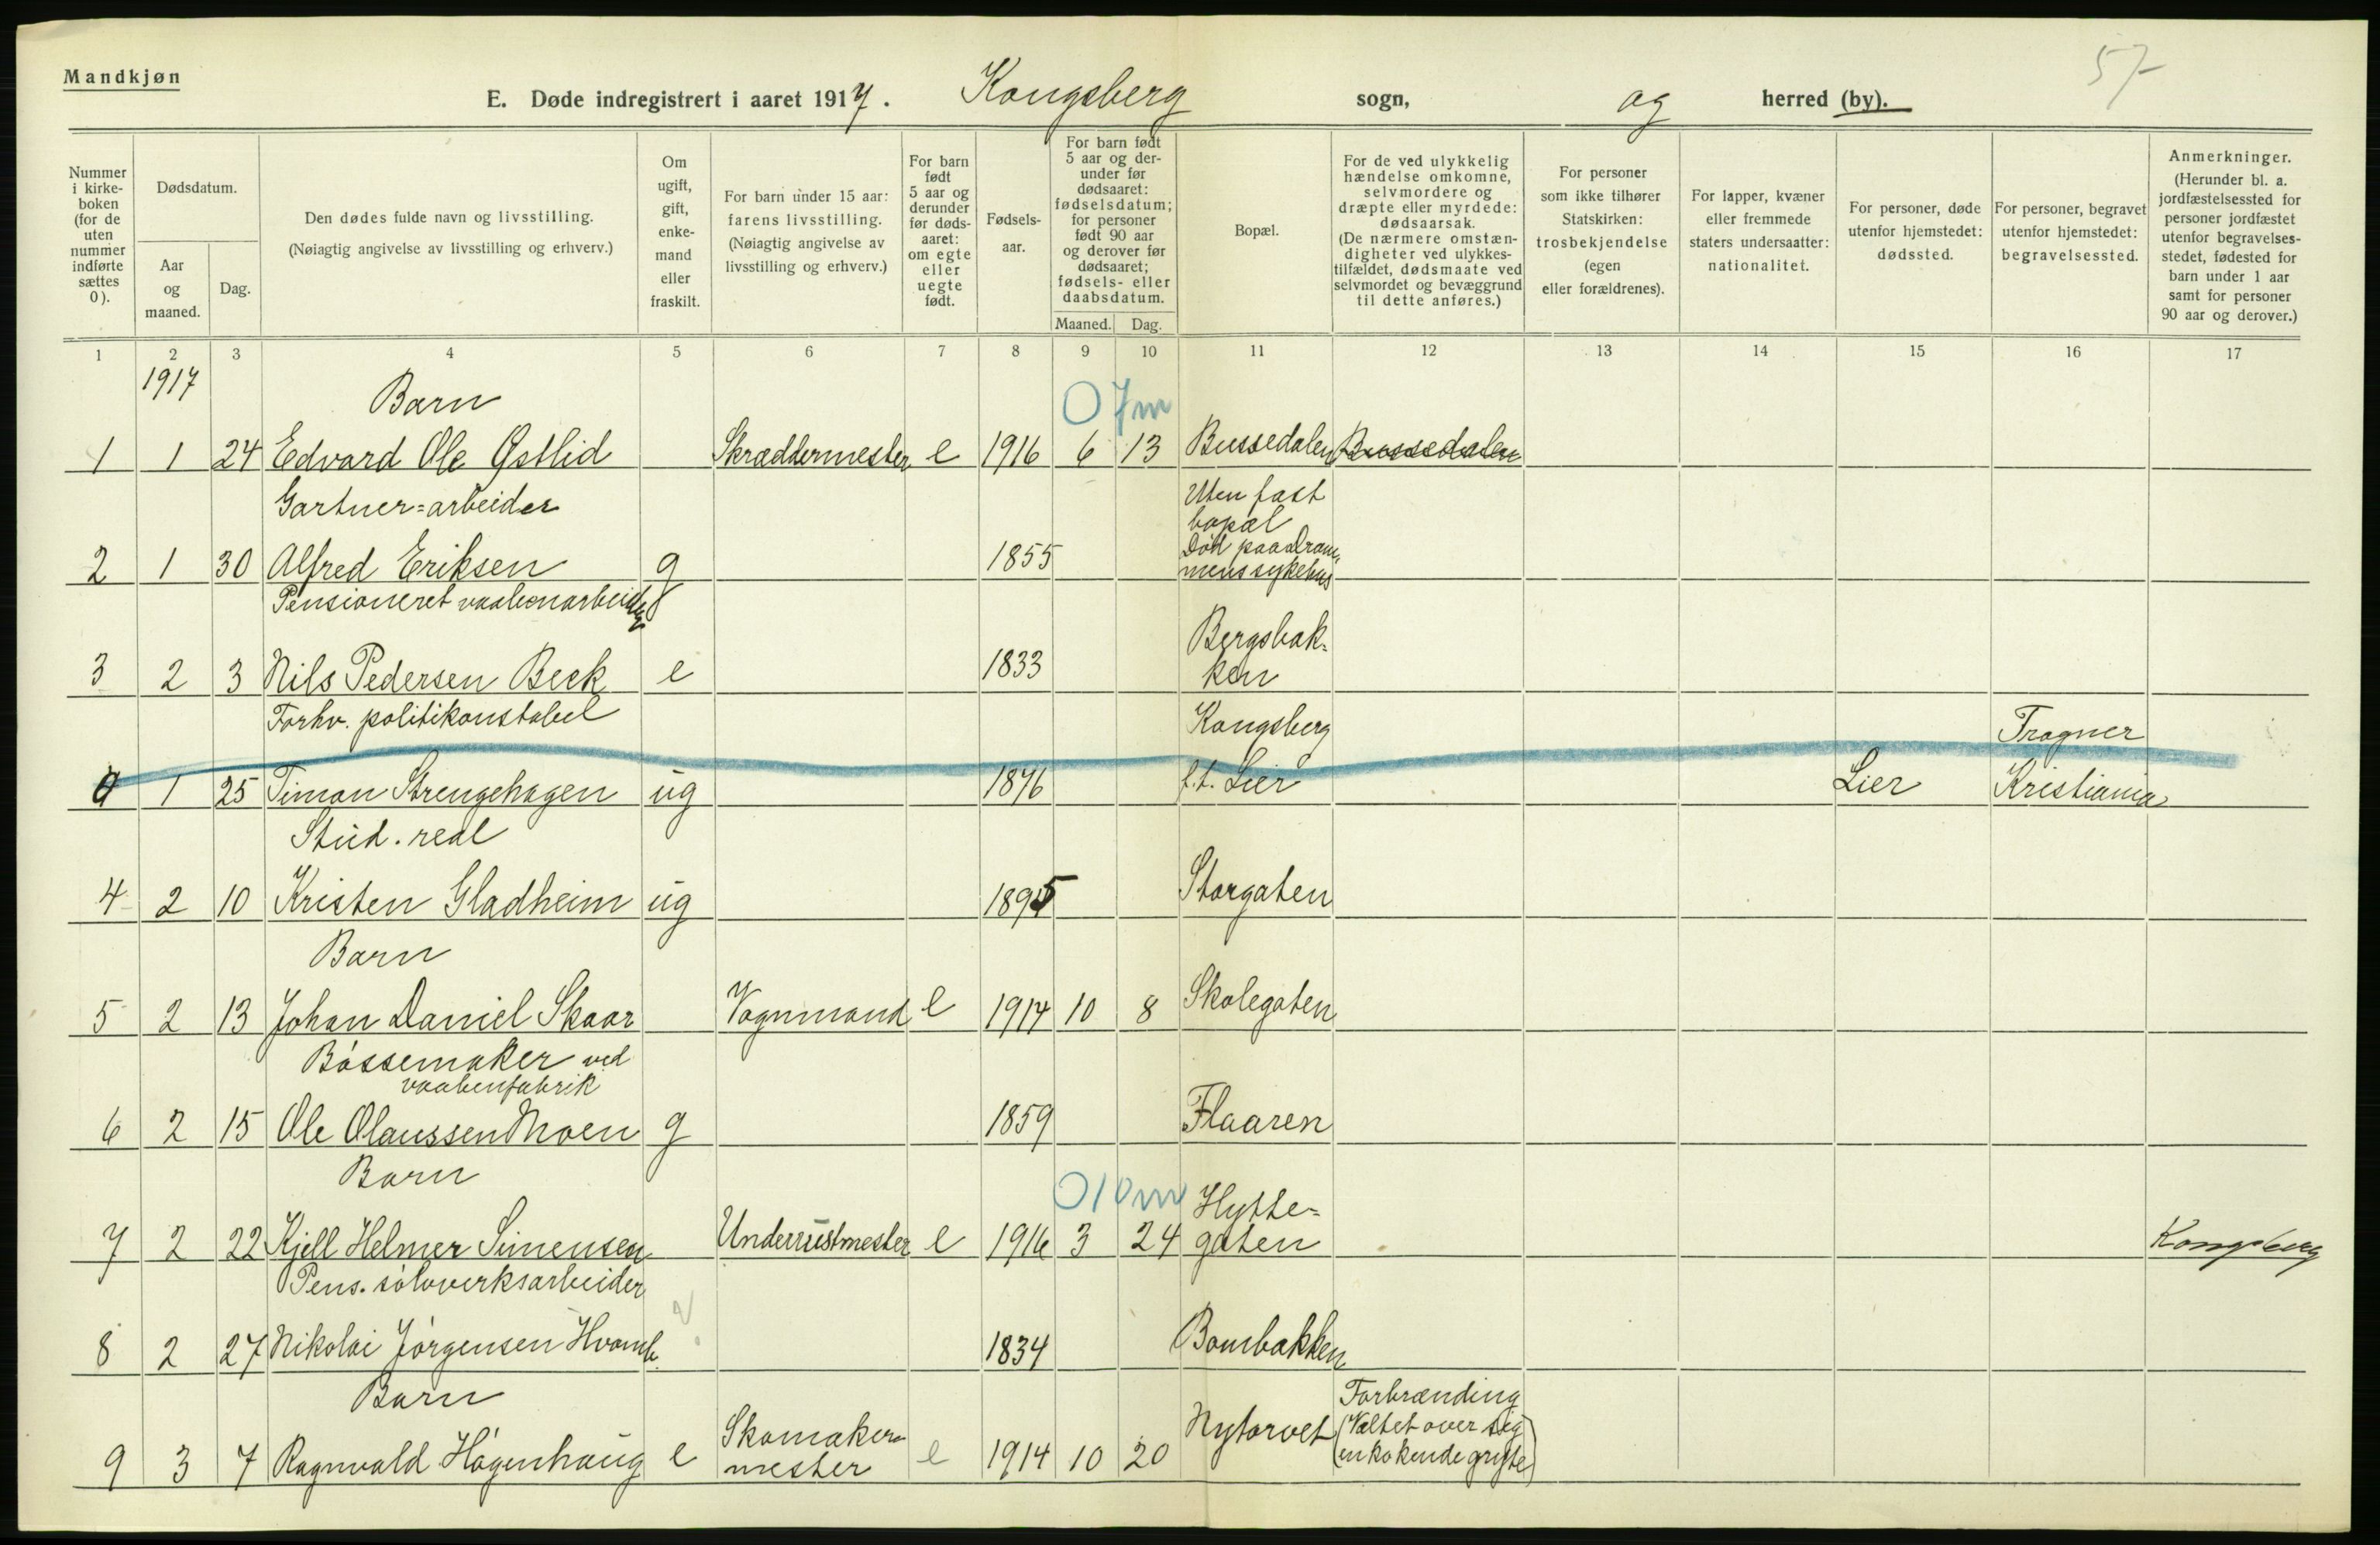 Mandkjøn
57
E. Døde indregistrert i aaret 1917. Kongsberg sogn, og herred (by).
Nummer i kirkeboken (for de uten nummer indførte sættes 0).
Dødsdatum.
Aar og maaned.
Dag.
Den dødes fulde navn og livsstilling. (Nøiagtig angivelse av livsstilling og erhverv.)
Om ugift, gift, enkemand eller fraskilt.
For barn under 15 aar: farens livsstilling. (Nøiagtig angivelse av livsstilling og erhverv.)
For barn født 5 aar og derunder før dødsaaret: om egte eller uegte født.
Fødselsaar.
For barn født 5 aar og derunder før dødsaaret: fødselsdatum; for personer født 90 aar og derover før dødsaaret; fødsels- eller daabsdatum.
Maaned. Dag.
Bopæl.
For de ved ulykkelig hændelse omkomne, selvmordere og dræpte eller myrdede: dødsaarsak. (De nærmere omstændigheter ved ulykkestilfældet, dødsmaate ved selvmordet og bevæggrund til dette anføres.)
For personer som ikke tilhører Statskirken: trosbekjendelse (egen eller forældrenes).
For lapper, kvæner eller fremmede staters undersaatter: nationalitet.
For personer, døde utenfor hjemstedet: dødssted.
For personer, begravet utenfor hjemstedet: begravelsessted.
Anmerkninger. (Herunder bl. a. jordfæstelsessted for personer jordfæstet utenfor begravelsesstedet, fødested for barn under 1 aar samt for personer 90 aar og derover.)
1 2 3 4 5 6 7 8 9 10 11 12 13 14 15 16 17
1917
Barn
0 7m
1 1 24 Edvard Ole Østlid Skræddermester e 1916 6 13 Bussedalen Bussedalen
Gartner=arbeider
Uten fast
bopæl
Død paa Dram-
2 1 30 Alfred Eriksen g 1855 mens sykehus
Pensioneret vaabenarbeider
Bergsbak-
3 2 3 Nils Pedersen Beck e 1833 ken
Forhv. politikonstabel Kongsberg Frogner
0 1 25 Timan Strengehagen ug 1876 f.t. Lier Lier Kristiania
Stud. real
4 2 10 Kristen Gladheim ug 1895 Storgaten
Barn
5 2 13 Johan Daniel Skaar Vognmand e 1914 10 8 Skolegaten
Bøssemaker ved
vaabenfabrik
6 2 15 Ole Olaussen Moen g 1859 Flaaren
Barn
0 10m
Hytte-
7 2 22 Kjell Helmer Simensen Underrustmester e 1916 3 24 gaten Kongsberg
Pens. sølvverksarbeider
?
8 2 27 Nikolai Jørgensen Hvamb 1834 Bombakken
Barn
Forbrænding
Skomaker-
(Væltet over sig
9 3 7 Ragnvald Høgenhaug e mester e 1914 10 20 Nytorvet en kokende gryte)